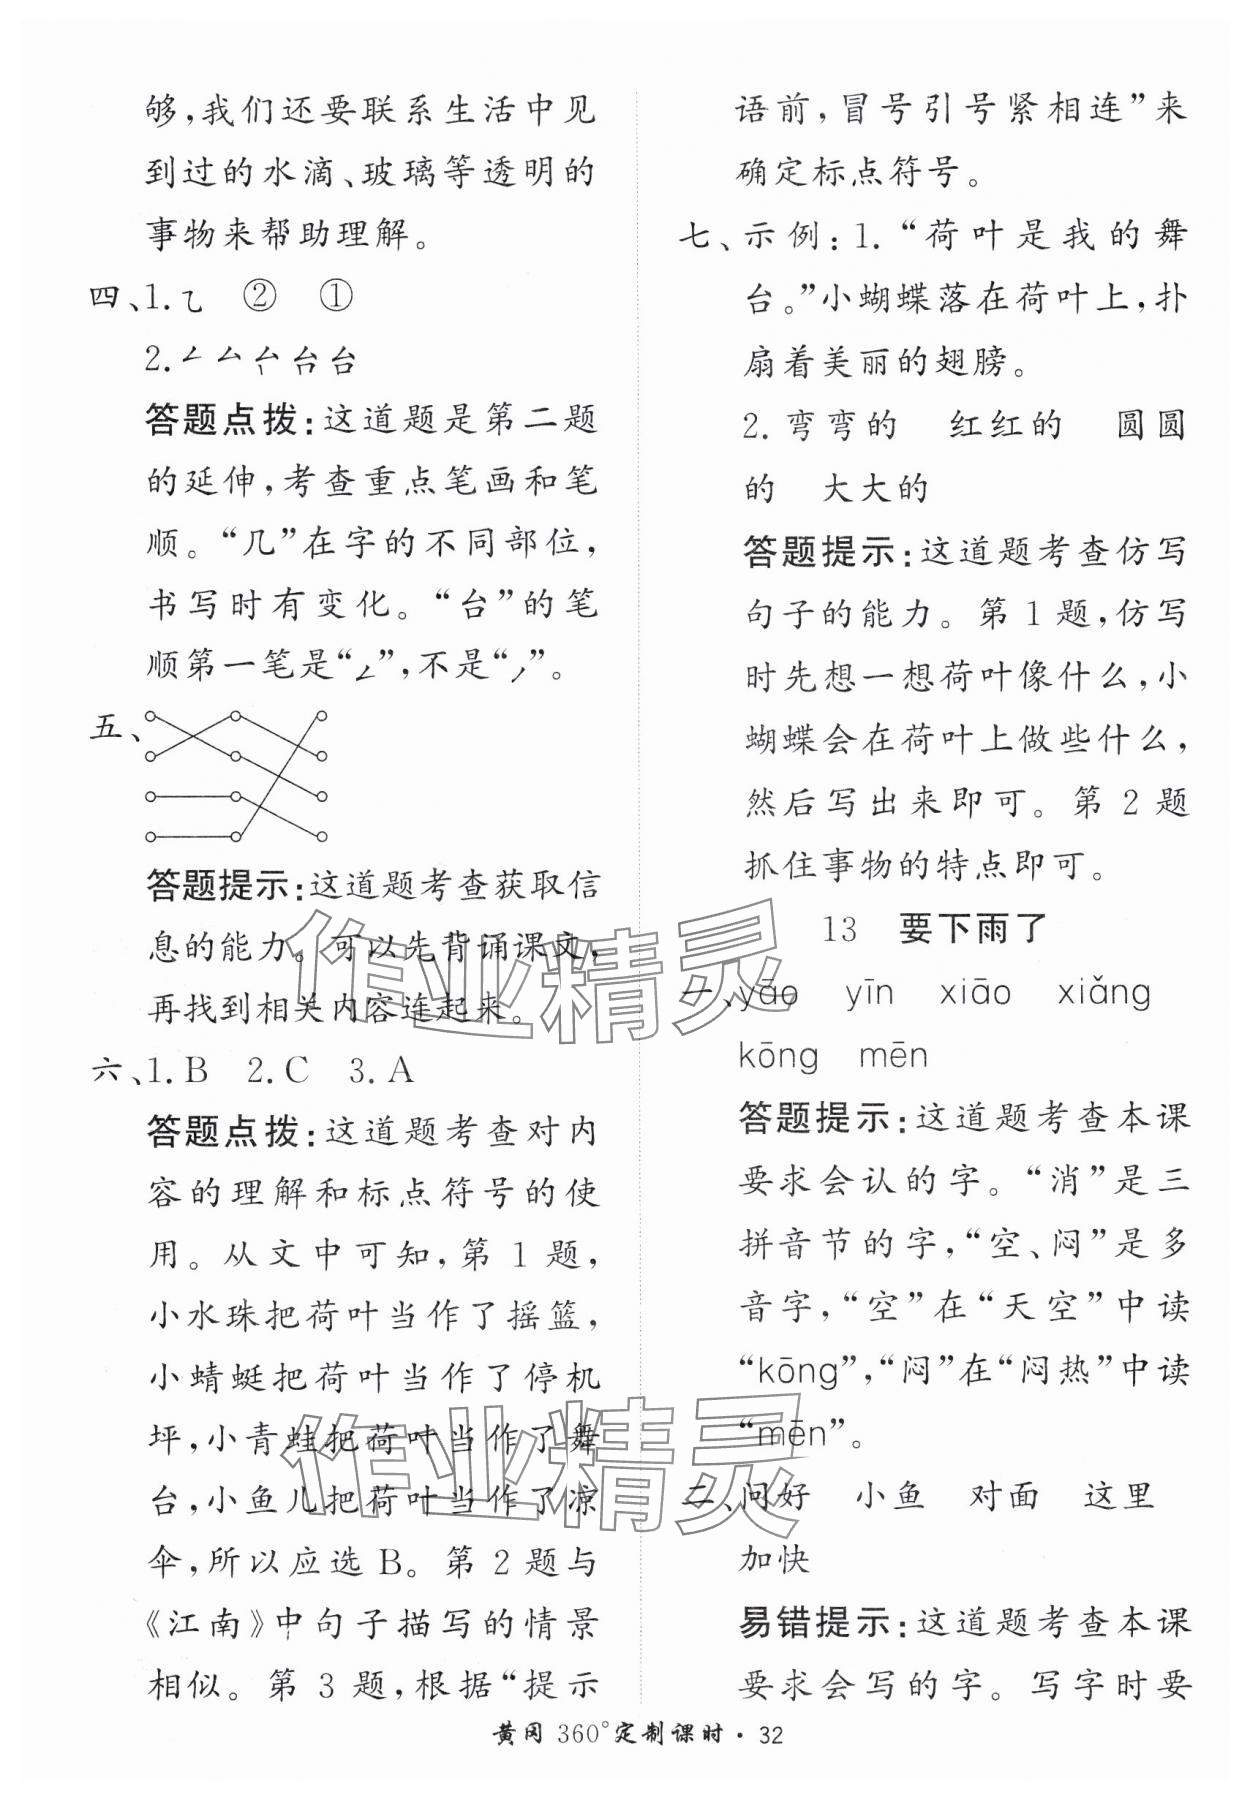 够,我们还要联系生活中见
到过的水滴、玻璃等透明的
事物来帮助理解。
四、1.⺄ ② ①
2.
答题点拨:这道题是第二题
的延伸,考查重点笔画和笔
顺。“几”在字的不同部位,
书写时有变化。“台”的笔
顺第一笔是“𠃋”,不是“㇒”。
五、
答题提示:这道题考查获取信
息的能力。可以先背诵课文,
再找到相关内容连起来。
六、1.B 2.C 3.A
答题点拨:这道题考查对内
容的理解和标点符号的使
用。从文中可知,第1题,
小水珠把荷叶当作了摇篮,
小蜻蜓把荷叶当作了停机
坪,小青蛙把荷叶当作了舞
台,小鱼儿把荷叶当作了凉
伞,所以应选B。第2题与
《江南》中句子描写的情景
相似。第3题,根据“提示
语前,冒号引号紧相连”来
确定标点符号。
七、示例:1.“荷叶是我的舞
台。”小蝴蝶落在荷叶上,扑
扇着美丽的翅膀。
2.弯弯的 红红的 圆圆
的 大大的
答题提示:这道题考查仿写
句子的能力。第1题,仿写
时先想一想荷叶像什么,小
蝴蝶会在荷叶上做些什么,
然后写出来即可。第2题
抓住事物的特点即可。
13 要下雨了
一、yāo yīn xiāo xiǎng
kōng mēn
答题提示:这道题考查本课
要求会认的字。“消”是三
拼音节的字,“空、闷”是多
音字,“空”在“天空”中读
“kōng”,“闷”在“闷热”中读
“mēn”。
二、问好 小鱼 对面 这里
加快
易错提示:这道题考查本课
要求会写的字。写字时要
黄冈360°定制课时·32
作业精灵
作业精灵